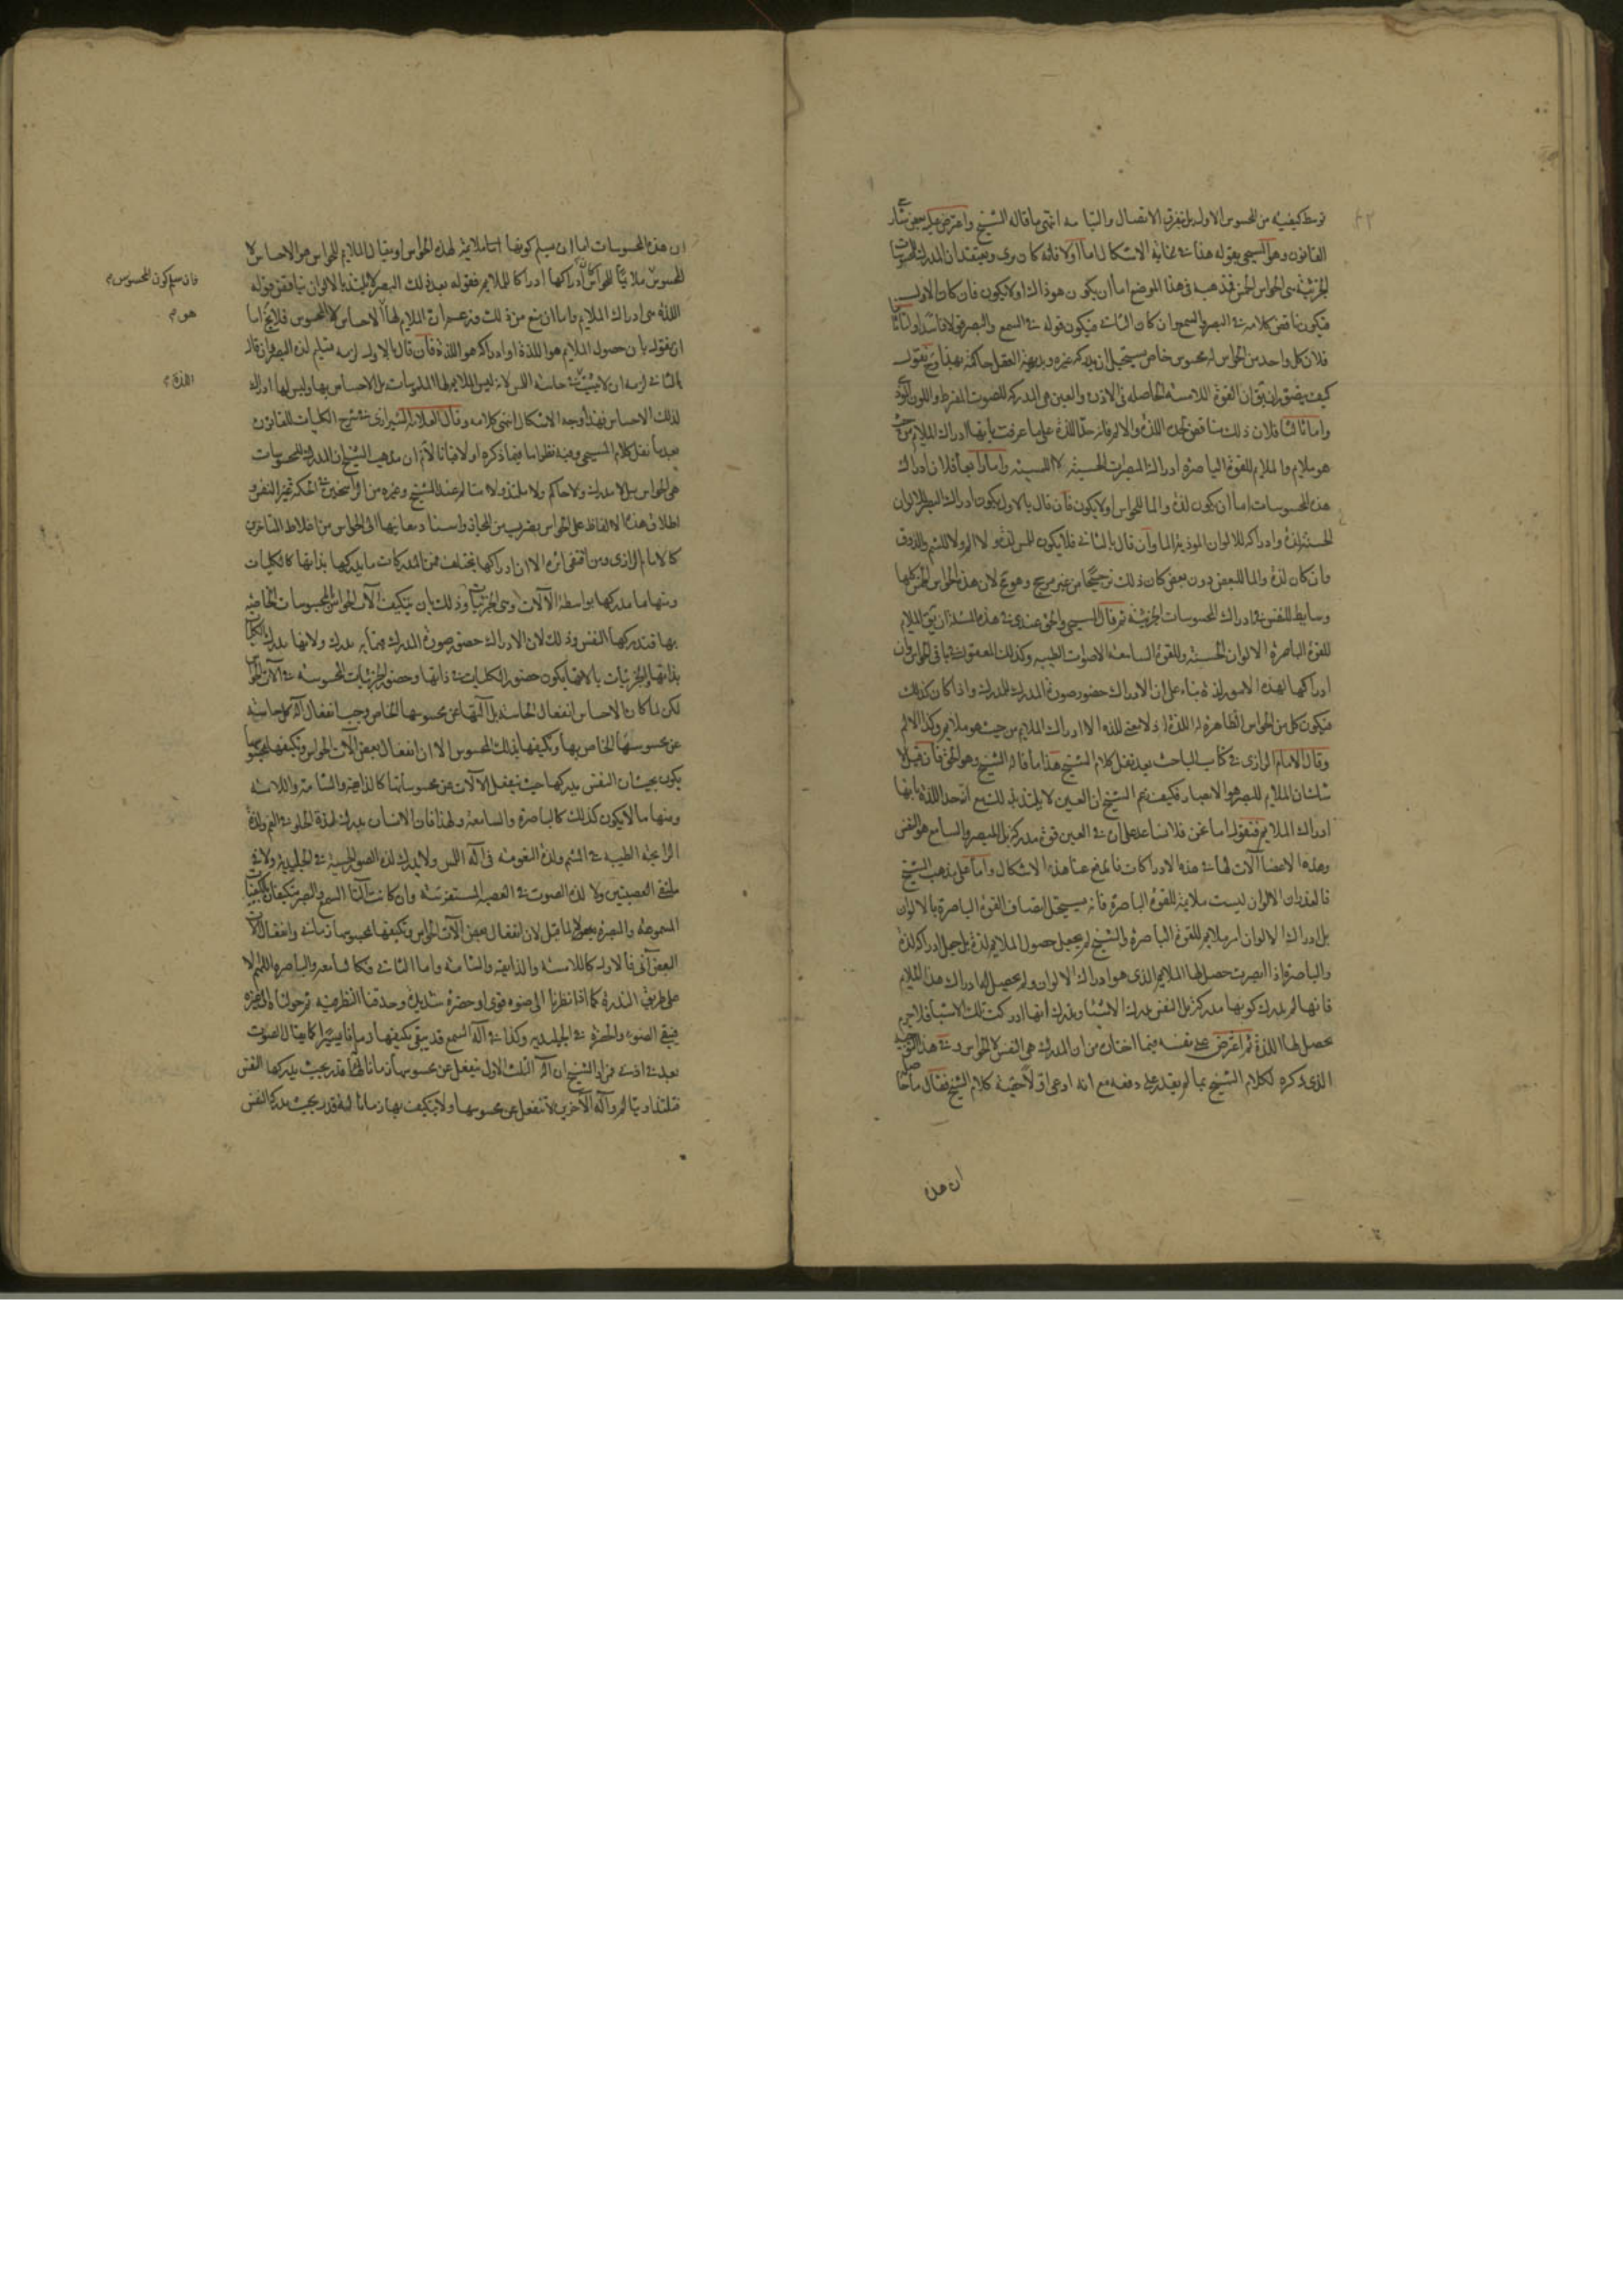 توسط كيفيته من المحسوس الاول بل بتفرق الاتصال والتيامه انتهى ما قاله الشيخ واعترض عليه بعض شار
القانون وهو المسيحى بقوله هذا فى غاية الاشكال اما اولا فانه كان يرى ويعتقد ان المدرك للمحسوسات
الجزئية هى الحواس الخمس فمذهبه فى هذا الموضع اما ان يكون هو ذاك اولا يكون فان كان الاول
فيكون ناقض كلامه فى البصر والسمع وان كان الثانى فيكون قوله فى السمع والبصر قولا فاسدا واما ثانيا
فلان كل واحد من الحواس له محسوس خاص يستحيل ان يدركه غيره وبديهة العقل حاكمة بهذا وح نقول
كيف يتصور ان يق ان القوة اللامسة الحاصله فى الاذن والعين هى المدركه للصوت المفرط واللون الموذى
واما ثالثا فلان ذلك يناقض لحد اللذة والالم فانه حد اللذة على ما عرفت بانها ادراك الملايم من حيث
هو ملايم والملايم للقوة الباصرة ادراك المبصرات الحسنة لا اللمسية واما رابعا فلان ادراك
هذه المحسوسات اما ان يكون لذة والما للحواس اولا يكون فان قال بالاول يكون ادراك البصر للالوان
الحسنة لذة وادراكه للالوان الموذية الما وان قال بالثانى فلا يكون للمس لذة ولا الم ولا للشم والذوق
وان كان لذة والما للبعض دون بعض كان ذلك ترجيحا من غير مرجح وهو مح لان هذه الحواس الخمس كلها
وسايط للنفس فى ادراك المحسوسات الجزئية ثم قال المسيحى والحق عندى فى هذه المسئلة ان يق الملايم
للقوة الباصرة الالوان الحسنة وللقوة السامعة الاصوات الطيبه وكذلك القول فى باقى الحواس وان
ادراكها لهذه الامور لذة بناء على ان الادراك حضور صورة المدرك للمدرك واذا كان كذلك
فيكون كل من الحواس الظاهرة له اللذة اذ لا معنى للذة الا ادراك الملايم من حيث هو ملايم وكذا الالم
وقال الامام الرازى فى كتاب المباحث بعد نقل كلام الشيخ هذا ما قاله الشيخ وهو الحق فان قيل لا
شك ان الملايم للبصر هو الابصار فكيف زعم الشيخ ان العين لا يلتذ بذلك مع انه حد اللذة بانها
ادراك الملايم فنقول اما نحن فلا نساعد على ان فى العين قوة مدركة بل المبصر والسامع هو النفس
وهذه الاعضا آلات لها فى هذه الادراكات فاندفع عنا هذا الاشكال واما على مذهب الشيخ
فالعذر ان الالوان ليست ملايمة للقوة الباصرة فانه يستحيل اتصاف القوة الباصرة بالالوان
بل ادراك الالوان امر ملايم للقوة الباصرة والشيخ لم يجعل حصول الملايم لذة بل جعل ادراكه لذة
والباصرة اذا ابصرت حصل لها الملايم الذى هو ادراك الالوان ولم يحصل لها ادراك هذا الملايم
فانها لم يدرك كونها مدركة بل النفس يدرك الاشيا ويدرك انها ادركت تلك الاشيا فلا جرم
يحصل لها اللذة ثم اعترض على نفسه فيما اختاره من ان المدرك هى النفس لا الحواس وفى هذا التوجيه
الذى ذكره لكلام الشيخ بما لم يقدر على دفعه مع انه ادعى اولا حقية كلام الشيخ فقال ما حاصله
ان هذه
ان هذه المحسوسات اما ان يسلم كونها ملايمة لهذه الحواس او يقال الملايم للحواس هو الاحساس لا
المحسوس ملايما للحواس كان ادراكها ادراكا للملايم فقوله بعد ذلك البصر لا يلتذ بالالوان يناقض قوله
اللذة هى ادراك الملايم واما ان منع من ذلك وزعم ان الملايم لها الاحساس لا المحسوس فلايخ اما
ان يقول بان حصول الملايم هو اللذة او ادراكه هو اللذة فان قال بالاول لزمه تسليم لذة البصر وان قال
بالثانى لزمه ان لا يثبت فى حاسة اللمس لانه ليس الملايم لها الملموسات بل الاحساس بها وليس لها ادراك
لذلك الاحساس فهذا وجه الاشكال انتهى كلامه وقال العلامة الشيرازى فى شرح الكليات للقانون
بعد ما نقل كلام المسيحى وفيه نظر اما فيما ذكره اولا فبانا لانم ان مذهب الشيخ ان المدرك للمحسوسات
هى الحواس بل لا مدرك ولا حاكم ولا ملتذ ولا متالم عند الشيخ وغيره من الراسخين فى الحكمة غير النفس و
اطلاق هذه الالفاظ على الحواس بضرب من المجاز واسناد معانيها الى الحواس من اغلاط المتاخرين
كالامام الرازى ومن اقتفى اثره الا ان ادراكها يختلف فمن المدركات ما يدركها بذاتها كالكليات
ومنها ما يدركها بواسطة الآلات وهى الجزئيات وذلك بان يتكيف آلات الحواس بالمحسوسات الخاصة
بها فتدركها النفس وذلك لان الادراك حضور صورة المدرك فيما به يدرك ولانها يدرك الكليات
بذاتها والجزئيات بآلاتها يكون حضور الكليات فى ذاتها وحضور الجزئيات المحسوسة فى آلات الحواس
لكن لما كان الاحساس انفعال الحاسة بل آلتها عن محسوسها الخاص وجب انفعال آلة كل حاسة
عن محسوسها الخاص بها وتكيفها بذلك المحسوس الا ان انفعال بعض آلات الحواس وتكيفها بمحسوسها
يكون بحيث ان النفس يدركها حيث ينفعل الآلات عن محسوساتها كالذايقة والشامة واللامسة
ومنها ما لا يكون كذلك كالباصرة والسامعة ولهذا فان الانسان يدرك لذة الحلو فى الفم ولذة
الرايحة الطيبه فى الشم ولذة النعومة فى آلة اللمس ولا يدرك لذة الصور الحسنة فى الجليدية ولا فى
ملتقى العصبتين ولا لذة الصوت فى العصبه المستفرشة وان كانت آلتا السمع والبصر متكيفتان بالكيفيات
المسموعة والمبصرة لما قيل لان انفعال بعض آلات الحواس وتكيفها بمحسوسها زمانى وانفعال آلات
البعض آنى فالاول كاللامسة والذايقة والشامة واما الثانى فكالسامعة والباصرة اللهم الا
على طريق الندرة كما اذا نظرنا الى ضوء قوى او خضرة شديدة وحدقنا النظر فيه ثم حولناه الى غيره
فيبقى الضوء والخضرة فى الجليدية وكذا فى آلة السمع قد يبقى تكيفها زمانا يسيرا كما يقال الصوت
بعد فى اذنى فمراد الشيخ ان آلة الثلث الاول ينفعل عن محسوسها زمانا له قدر بحيث يدركها النفس
فتلتذ او يتالم وآلة الآخرين لا تنفعل عن محسوسها ولا يتكيف بها زمانا له قدر بحيث يدركها النفس
فان سلم كون المحسوس م
هو م
اللذة م